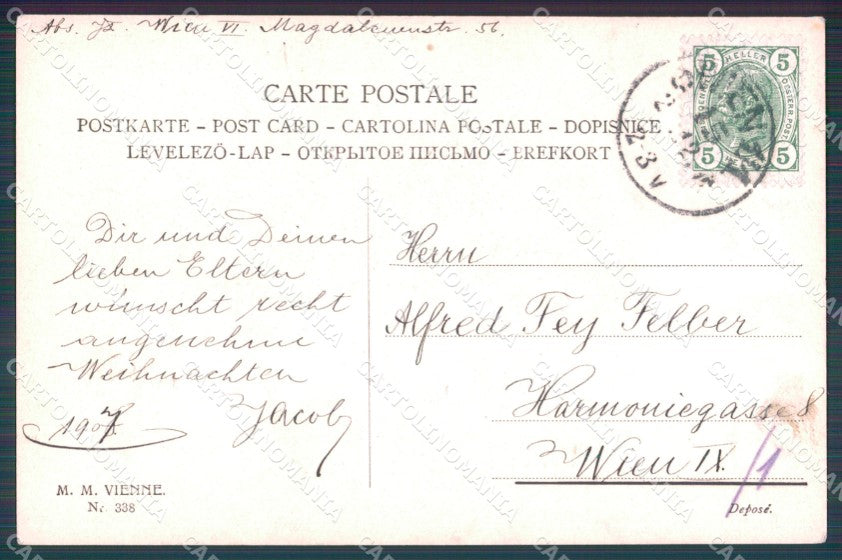 Abs. Wien VI. Magdalenenstr. 56.
CARTE POSTALE
POSTKARTE – POST CARD – CARTOLINA POSTALE – DOPISNICE
LEVELEZŐ-LAP – ОТКРЫТОЕ ПИСЬМО – BREFKORT
5 HELLER 5
5 5
WIEN
Dir und Deinen
lieben Eltern
wünscht recht
angenehme
Weihnachten
Jacob
1907
Herrn
Alfred Fey Felber
Harmoniegasse 8
Wien IX.
/1
M. M. VIENNE.
Nr. 338
Deposé.
CARTOLINOMANIA